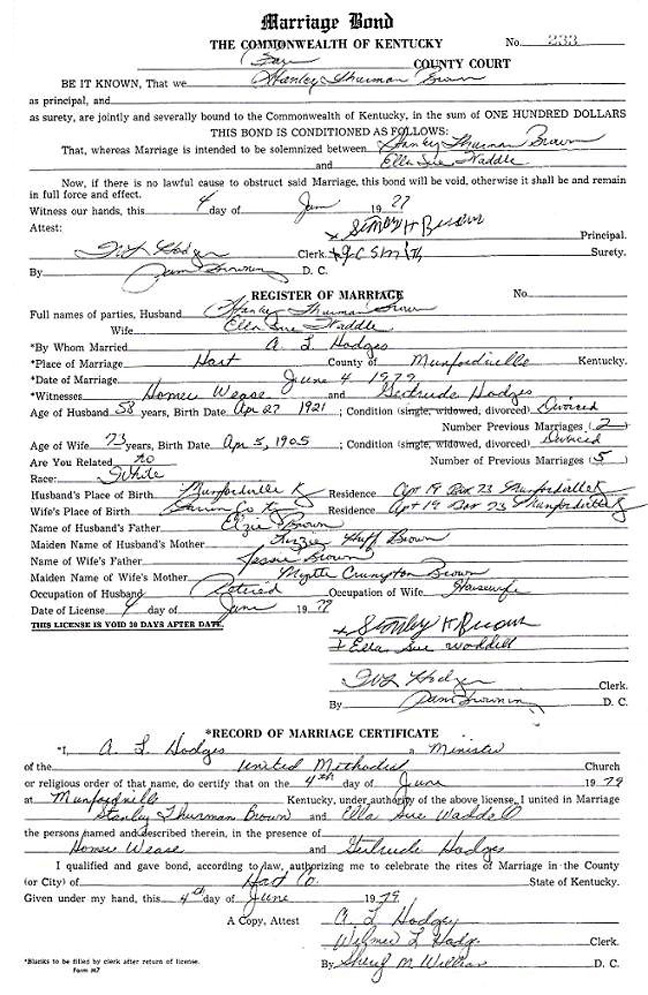 Marriage Bond
THE COMMONWEALTH OF KENTUCKY No. 233
COUNTY COURT
BE IT KNOWN, That we Stanley Thurman Brown
as principal, and
as surety, are jointly and severally bound to the Commonwealth of Kentucky, in the sum of ONE HUNDRED DOLLARS
THIS BOND IS CONDITIONED AS FOLLOWS:
That, whereas Marriage is intended to be solemnized between Stanley Thurman Brown
and Ella Sue Waddle
Now, if there is no lawful cause to obstruct said Marriage, this bond will be void, otherwise it shall be and remain
in full force and effect.
Witness our hands, this 4 day of June 19
Attest: Stanley H Brown Principal.
Hodges Clerk. J C Smith Surety.
By D. C.
REGISTER OF MARRIAGE No.
Full names of parties, Husband Stanley Thurman Brown
Wife Ella Sue Waddle
*By Whom Married A. L Hodges
*Place of Marriage Hart County of Munfordville Kentucky.
*Date of Marriage June 4 1979
*Witnesses Homer Wease and Gertrude Hodges
Age of Husband 58 years, Birth Date Apr 27 1921 ; Condition (single, widowed, divorced) Divorced
Number Previous Marriages (2)
Age of Wife 73 years, Birth Date Apr 5, 1905 ; Condition (single, widowed, divorced) Divorced
Are You Related no Number of Previous Marriages (5)
Race: White
Husband's Place of Birth Munfordville Ky Residence Apt 19 Box 73 Munfordville Ky
Wife's Place of Birth Co Ky Residence Apt 19 Box 73 Munfordville Ky
Name of Husband's Father Elzie Brown
Maiden Name of Husband's Mother Lizzie Huff Brown
Name of Wife's Father Jessie Brown
Maiden Name of Wife's Mother Myrtle Crumpton Brown
Occupation of Husband Retired Occupation of Wife Housewife
Date of License 4 day of June 1979
THIS LICENSE IS VOID 30 DAYS AFTER DATE.
+ Stanley H Brown
+ Ella Sue Waddell
Hodges Clerk.
By D. C.
*RECORD OF MARRIAGE CERTIFICATE
*I, A. L Hodges a Minister
of the United Methodist Church
or religious order of that name, do certify that on the 4th day of June 1979
at Munfordville Kentucky, under authority of the above license, I united in Marriage
Stanley Thurman Brown and Ella Sue Waddell
the persons named and described therein, in the presence of
Homer Wease and Gertrude Hodges
I qualified and gave bond, according to law, authorizing me to celebrate the rites of Marriage in the County
(or City) of Hart Co. State of Kentucky.
Given under my hand, this 4th day of June 1979.
A Copy, Attest A. L Hodges
Clerk.
*Blanks to be filled by clerk after return of license. By D. C.
Form M7